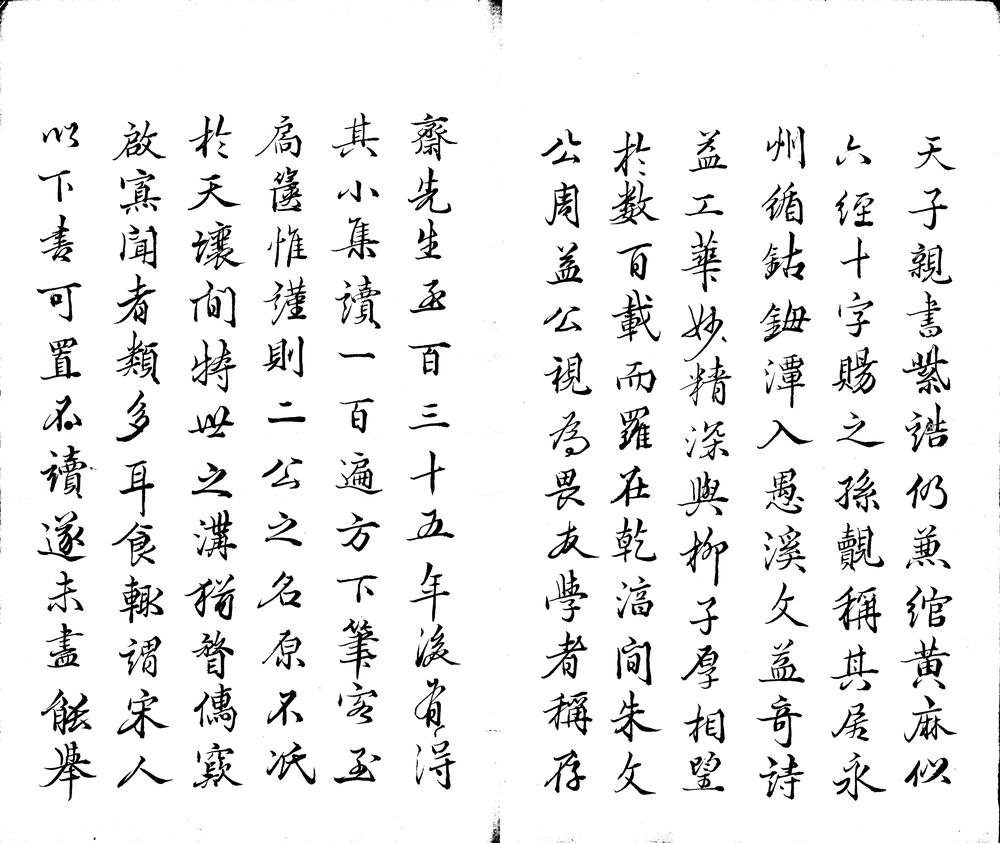 天子親書紫誥仍兼綰黃麻似
六經十字賜之孫觀稱其居永
州循鈷鉧潭入愚溪文益奇詩
益工華妙精深與柳子厚相望
於數百載而羅在乾淳間朱文
公周益公視為畏友學者稱存
齋先生至百三十五年後有得
其小集讀一百遍方下筆客至
扃篋惟謹則二公之名原不泯
於天壤間特世之溝猶瞀儔窾
啟寡聞者類多耳食輒謂宋人
以下書可置不讀遂未盡能舉